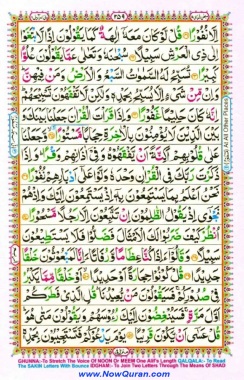 ۲۵۹
اِلَّا نُفُوْرًا قُلْ لَّوْ كَانَ مَعَهٗۤ اٰلِهَةٌ كَمَا يَقُوْلُوْنَ اِذًا لَّابْتَغَوْا
اِلٰى ذِى الْعَرْشِ سَبِيْلًا سُبْحٰنَهٗ وَتَعٰلٰى عَمَّا يَقُوْلُوْنَ عُلُوًّا
كَبِيْرًا تُسَبِّحُ لَهُ السَّمٰوٰتُ السَّبْعُ وَالْاَرْضُ وَمَنْ فِيْهِنَّ
وَاِنْ مِّنْ شَىْءٍ اِلَّا يُسَبِّحُ بِحَمْدِهٖ وَلٰكِنْ لَّا تَفْقَهُوْنَ تَسْبِيْحَهُمْ
اِنَّهٗ كَانَ حَلِيْمًا غَفُوْرًا وَاِذَا قَرَاْتَ الْقُرْاٰنَ جَعَلْنَا بَيْنَكَ
وَبَيْنَ الَّذِيْنَ لَا يُؤْمِنُوْنَ بِالْاٰخِرَةِ حِجَابًا مَّسْتُوْرًا وَّجَعَلْنَا
عَلٰى قُلُوْبِهِمْ اَكِنَّةً اَنْ يَّفْقَهُوْهُ وَفِىْۤ اٰذَانِهِمْ وَقْرًا وَاِذَا
ذَكَرْتَ رَبَّكَ فِى الْقُرْاٰنِ وَحْدَهٗ وَلَّوْا عَلٰٓى اَدْبَارِهِمْ نُفُوْرًا
نَحْنُ اَعْلَمُ بِمَا يَسْتَمِعُوْنَ بِهٖۤ اِذْ يَسْتَمِعُوْنَ اِلَيْكَ وَاِذْ هُمْ
نَجْوٰٓى اِذْ يَقُوْلُ الظّٰلِمُوْنَ اِنْ تَتَّبِعُوْنَ اِلَّا رَجُلًا مَّسْحُوْرًا
اُنْظُرْ كَيْفَ ضَرَبُوْا لَكَ الْاَمْثَالَ فَضَلُّوْا فَلَا يَسْتَطِيْعُوْنَ
سَبِيْلًا وَقَالُوْٓا ءَاِذَا كُنَّا عِظَامًا وَّرُفَاتًا ءَاِنَّا لَمَبْعُوْثُوْنَ خَلْقًا
جَدِيْدًا قُلْ كُوْنُوْا حِجَارَةً اَوْ حَدِيْدًا اَوْ خَلْقًا مِّمَّا يَكْبُرُ
فِىْ صُدُوْرِكُمْ فَسَيَقُوْلُوْنَ مَنْ يُّعِيْدُنَا قُلِ الَّذِىْ فَطَرَكُمْ
اَوَّلَ مَرَّةٍ فَسَيُنْغِضُوْنَ اِلَيْكَ رُءُوْسَهُمْ وَيَقُوْلُوْنَ مَتٰى هُوَ
قُلْ عَسٰٓى اَنْ يَّكُوْنَ قَرِيْبًا يَوْمَ يَدْعُوْكُمْ فَتَسْتَجِيْبُوْنَ بِحَمْدِهٖ
GHUNNA:-To Stretch The Voice Of NOON Or MEEM One Alif's Length QALQALA:- To Read
The SAKIN Letters With Bounce IDGHAM:- To Join Two Letters Through The Means Of SHAD
www.NowQuran.com